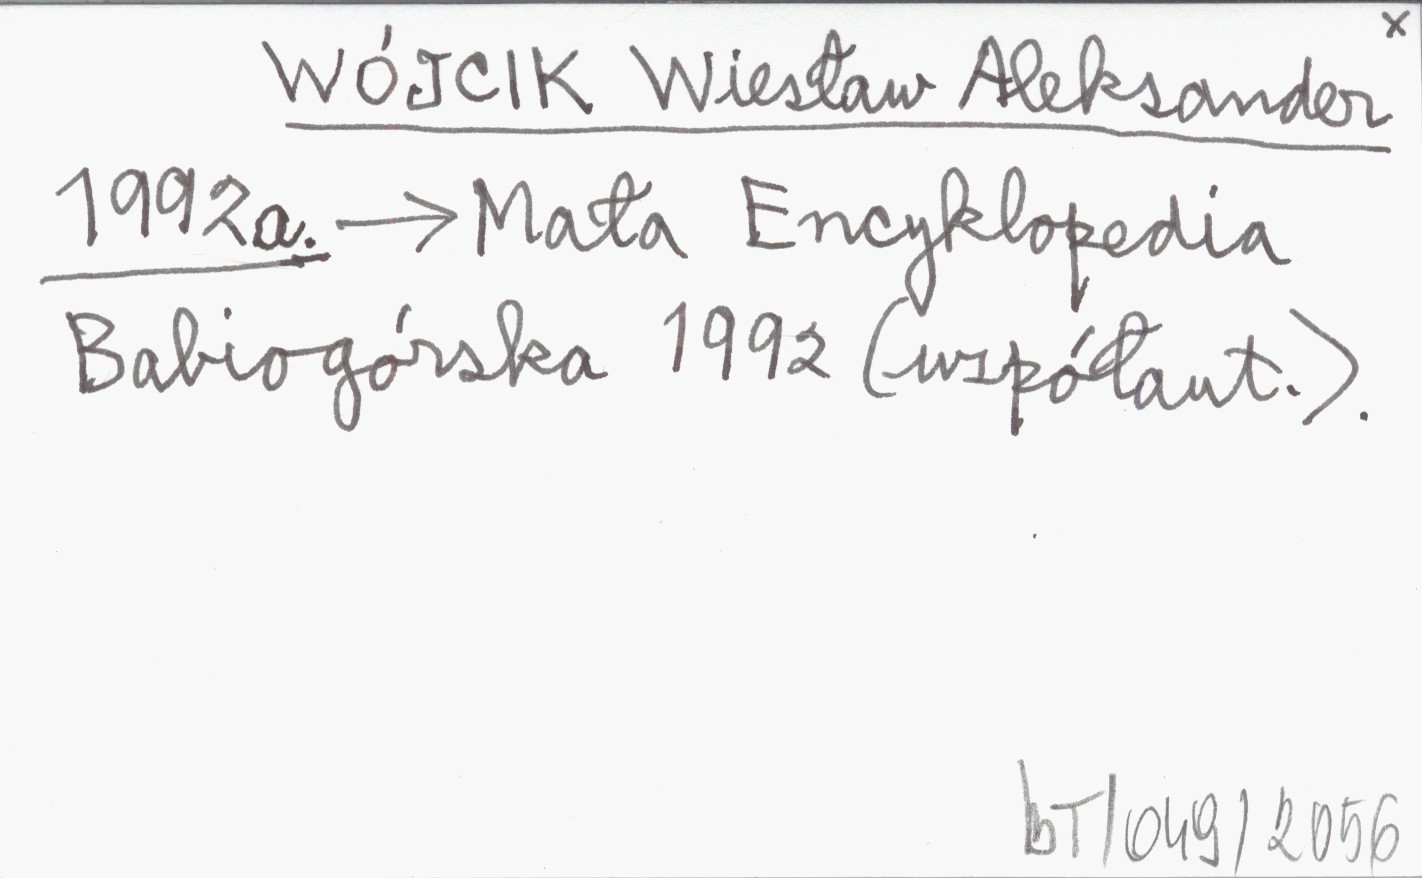 x
WÓJCIK Wiesław Aleksander
1992a. → Mała Encyklopedia
Babiogórska 1992 (współaut.).
bT/049/2056